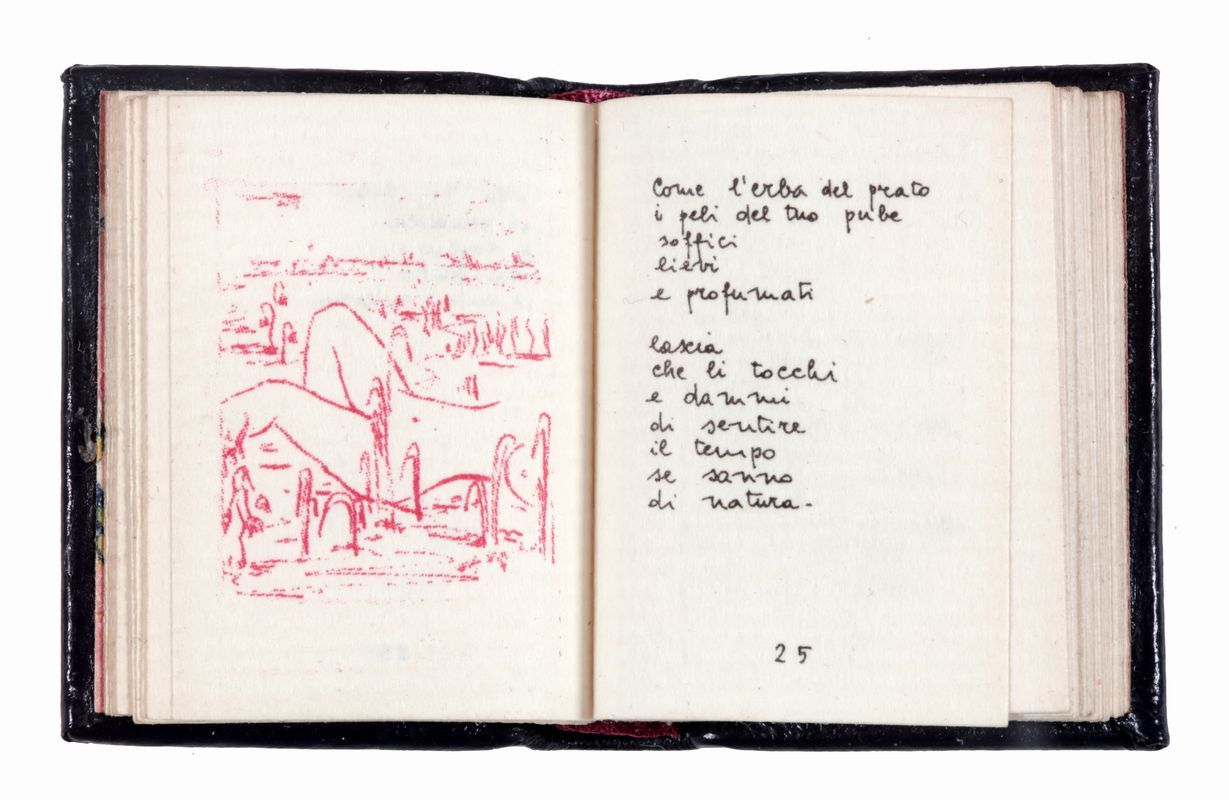 Come l'erba del prato
i peli del tuo pube
soffici
lievi
e profumati
lascia
che li tocchi
e dammi
di sentire
il tempo
se sanno
di natura.
25